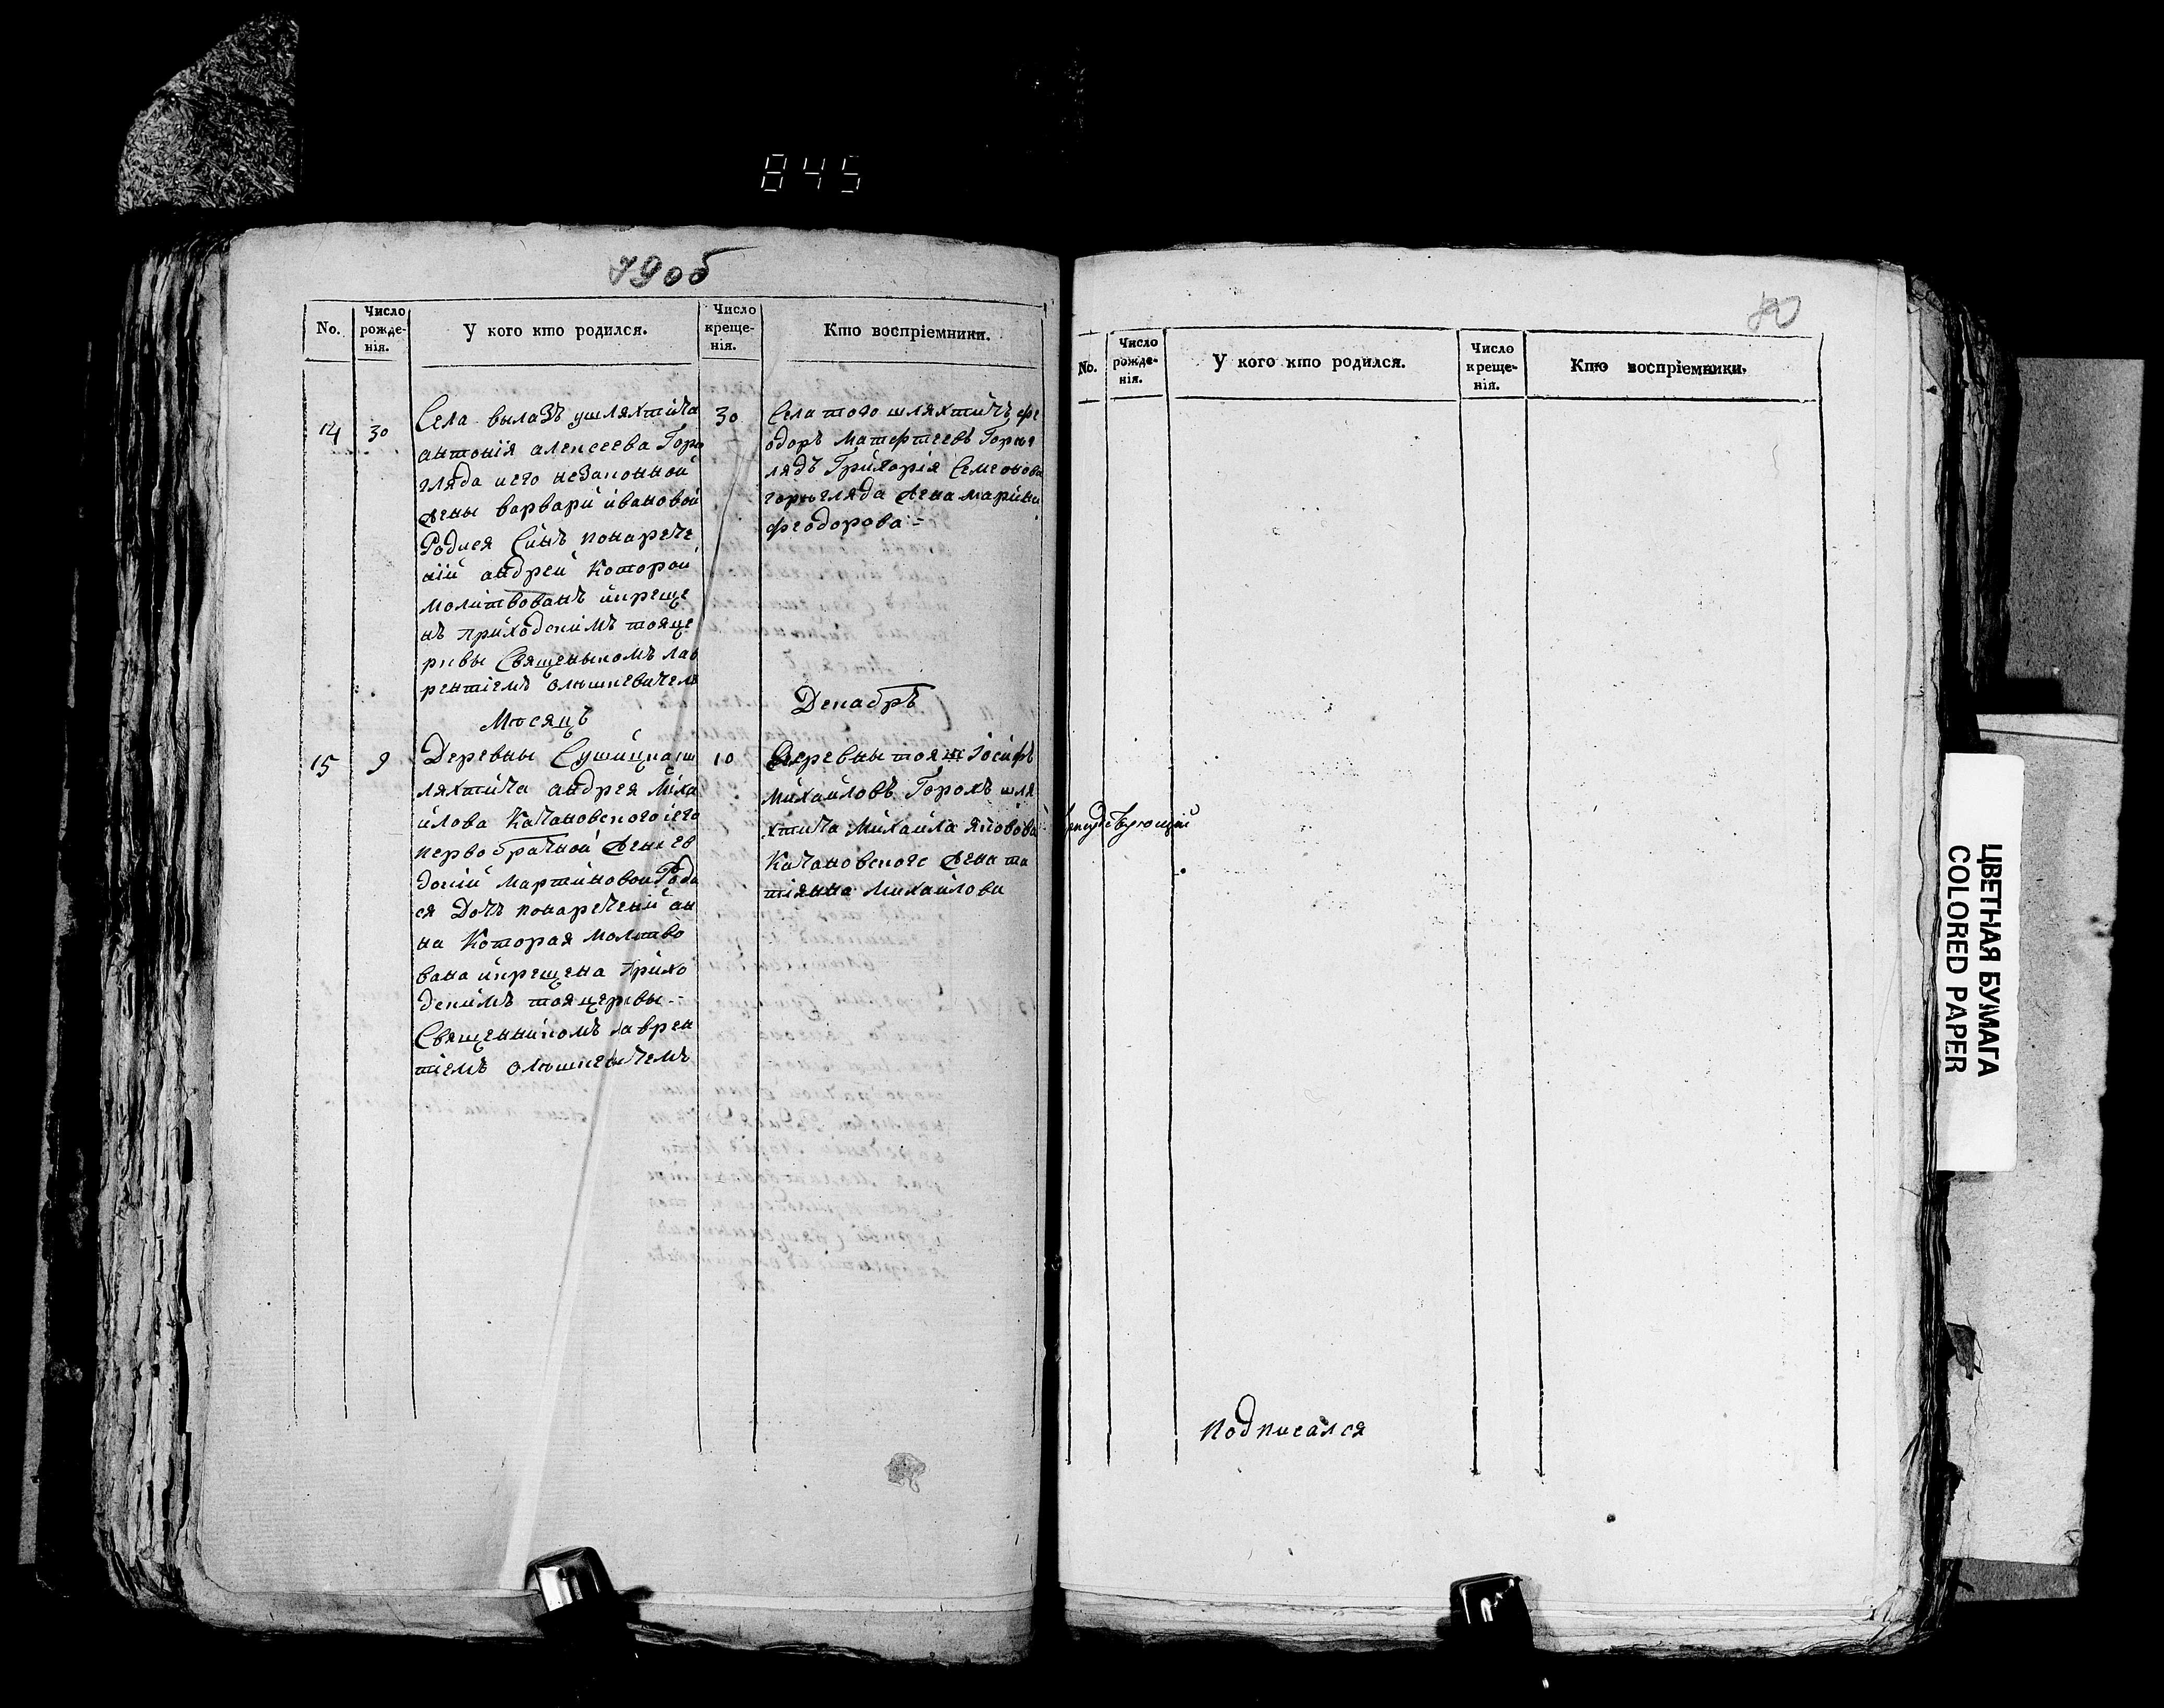 845
79об
No.
Число рожденія.
У кого кто родился.
Число крещенія.
Кто воспріемники.
14
30
Села вылазъ ушляхтича
антонія алексеева Горо
гляда иего незаконной
жены варвари ивановой
Родися Синъ понарече
ній андрей Которой
молитвованъ икреще
нъ приходскимъ тояце
ркви Священыкомъ лав
рентіемъ
30
Села того шляхтичъ фе
одоръ
лядъ Григорія Семенова
жена марина
феодорова
Месяцъ
Декабръ
15
9
Деревны Сушицка ш
ляхтича андрея Миха
илова Качановского иего
первобрачной жени ев
докіи мартиновой Роди
ся Дочъ понареченій ан
на Которая молитво
вана икрещена прихо
дскимъ тояцеркви
Священникомъ лаврен
тіемъ
10
Деревны тояж Іосифъ
Михаиловъ шля
хтича Михаила
Качановского жена та
тіянна Михаилова
80
No.
Число рожденія.
У кого кто родился.
Число крещенія.
Кто воспріемники.
подписался
ЦВЕТНАЯ БУМАГА
COLORED PAPER